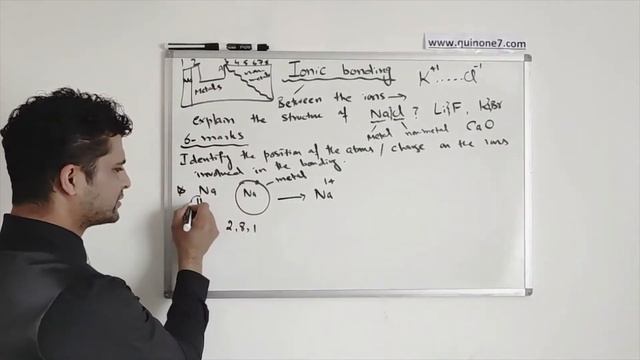 www.quinone7.com
1 2 3 4 5 6 7 8
Metals non-metals
Ionic bonding
K+1 ..... Cl-1
Between the ions →
explain the structure of Na|Cl ? Li|F, K|Br
6-marks metal nonmetal CaO
Identify the position of the atoms / charge on the ions
involved in the bonding.
Na Na metal → Na1+
11 2,8,1